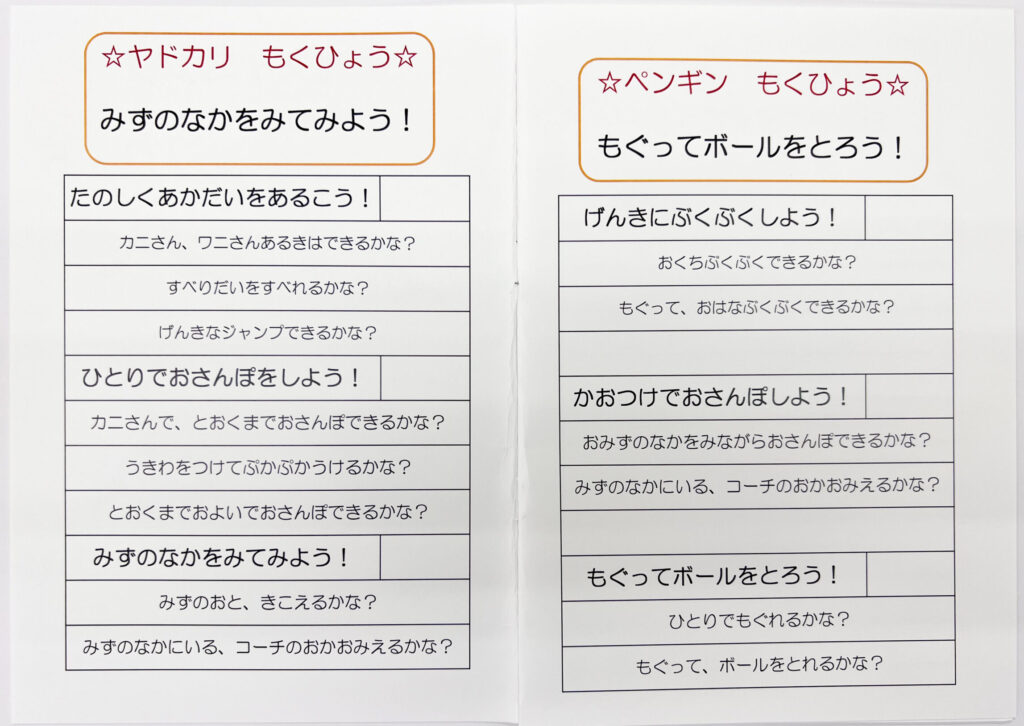 ☆ヤドカリ　もくひょう☆
みずのなかをみてみよう！
たのしくあかだいをあるこう！
カニさん、ワニさんあるきはできるかな？
すべりだいをすべれるかな？
げんきなジャンプできるかな？
ひとりでおさんぽをしよう！
カニさんで、とおくまでおさんぽできるかな？
うきわをつけてぷかぷかうけるかな？
とおくまでおよいでおさんぽできるかな？
みずのなかをみてみよう！
みずのおと、きこえるかな？
みずのなかにいる、コーチのおかおみえるかな？
☆ペンギン　もくひょう☆
もぐってボールをとろう！
げんきにぶくぶくしよう！
おくちぶくぶくできるかな？
もぐって、おはなぶくぶくできるかな？
かおつけでおさんぽしよう！
おみずのなかをみながらおさんぽできるかな？
みずのなかにいる、コーチのおかおみえるかな？
もぐってボールをとろう！
ひとりでもぐれるかな？
もぐって、ボールをとれるかな？